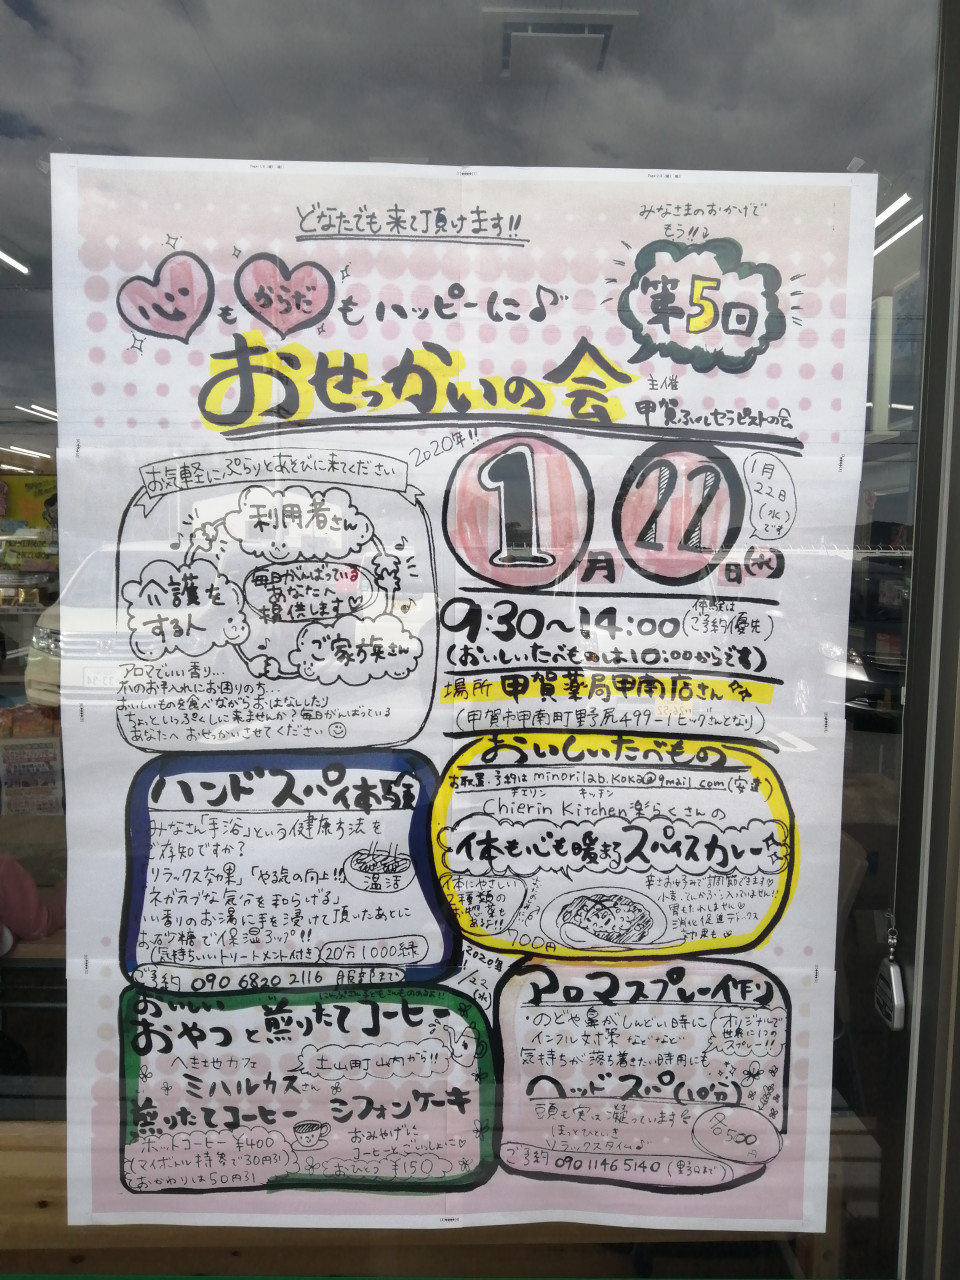 どなたでも来て頂けます!!
みなさまのおかげで
もう!!
第5回
心もからだもハッピーに♪
おせっかいの会
主催
甲賀ふれセラピストの会
2020年!!
お気軽にぷらりとあそびに来てください
利用者さん
介護をする人
毎日がんばっている
あなたへ
提供します
ご家族さん
アロマでいい香り…
爪のお手入れにお困りの方…
おいしいものを食べながらおはなししたり
ちょといっぷくしに来ませんか?毎日がんばっている
あなたへ おせっかいさせてください
1月22日(水)
1月
22日
(水)
です
9:30〜14:00
体験は
ご予約優先
(おいしいたべものは10:00からです)
場所 甲賀薬局甲南店さん
(甲賀市甲南町野尻499-1 ビッグさんとなり)
ハンドスパ体験
みなさん「手浴」という健康方法を
ご存知ですか?
「リラックス効果」「やる気の向上!!」
ネガティブな気分を和らげる」
いい香りのお湯に手を浸けて頂いたあとに
お砂糖で保湿
(気持ちいいトリートメント付き)
温活
20分1000縁
ご予約 090 6820 2116 服部まで
おいしいたべもの
お取置・予約は minorilab.koka@gmail.com (安達)
チエリン キッチン
Chierin Kitchen楽らくさんの
体も心も暖まるスパイスカレー
体にやさしい
2種類の
お惣菜も
あるよ!!
700円
辛さお好みで調節できます
小麦、でんぷん入っていません!!
胃もたれしない
消化促進デトックス
効果も
2020年
1/22
(水)
おいしい
おやつと煎りたてコーヒー
へき地カフェ
ミハルカスさん
土山町山内から!!
煎りたてコーヒー シフォンケーキ
ホットコーヒー ¥400
(マイボトル持参で30円引)
おかわりは50円引
おみやげに
コーヒーと ごいっしょに
おひとつ ¥150
アロマスプレー作り
・のどや鼻がしんどい時に
インフル対策 などなど
気持ちが落ち着きたい時用にも
オリジナルで
世界に1つの
スプレー!!
ヘッドスパ(10分)
頭も実は凝っています
ほっとひといき
リラックスタイム♪
各500円
ご予約 090 1146 5140 (野口まで)